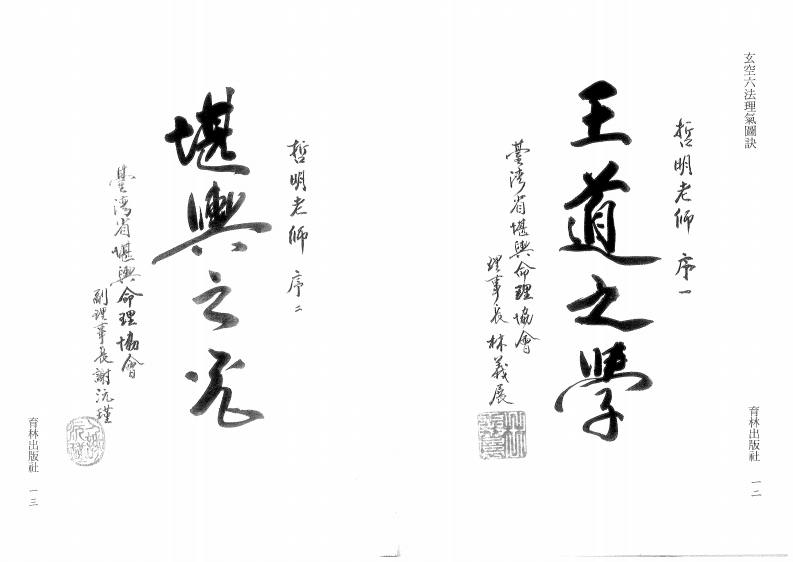 玄空六法理氣圖訣
哲明老師 序一
王道之學
臺灣省堪輿命理協會
理事長 林義展
育林出版社 一二
哲明老師 序二
堪輿之光
臺灣省堪輿命理協會
副理事長 謝沅瑾
育林出版社 一三